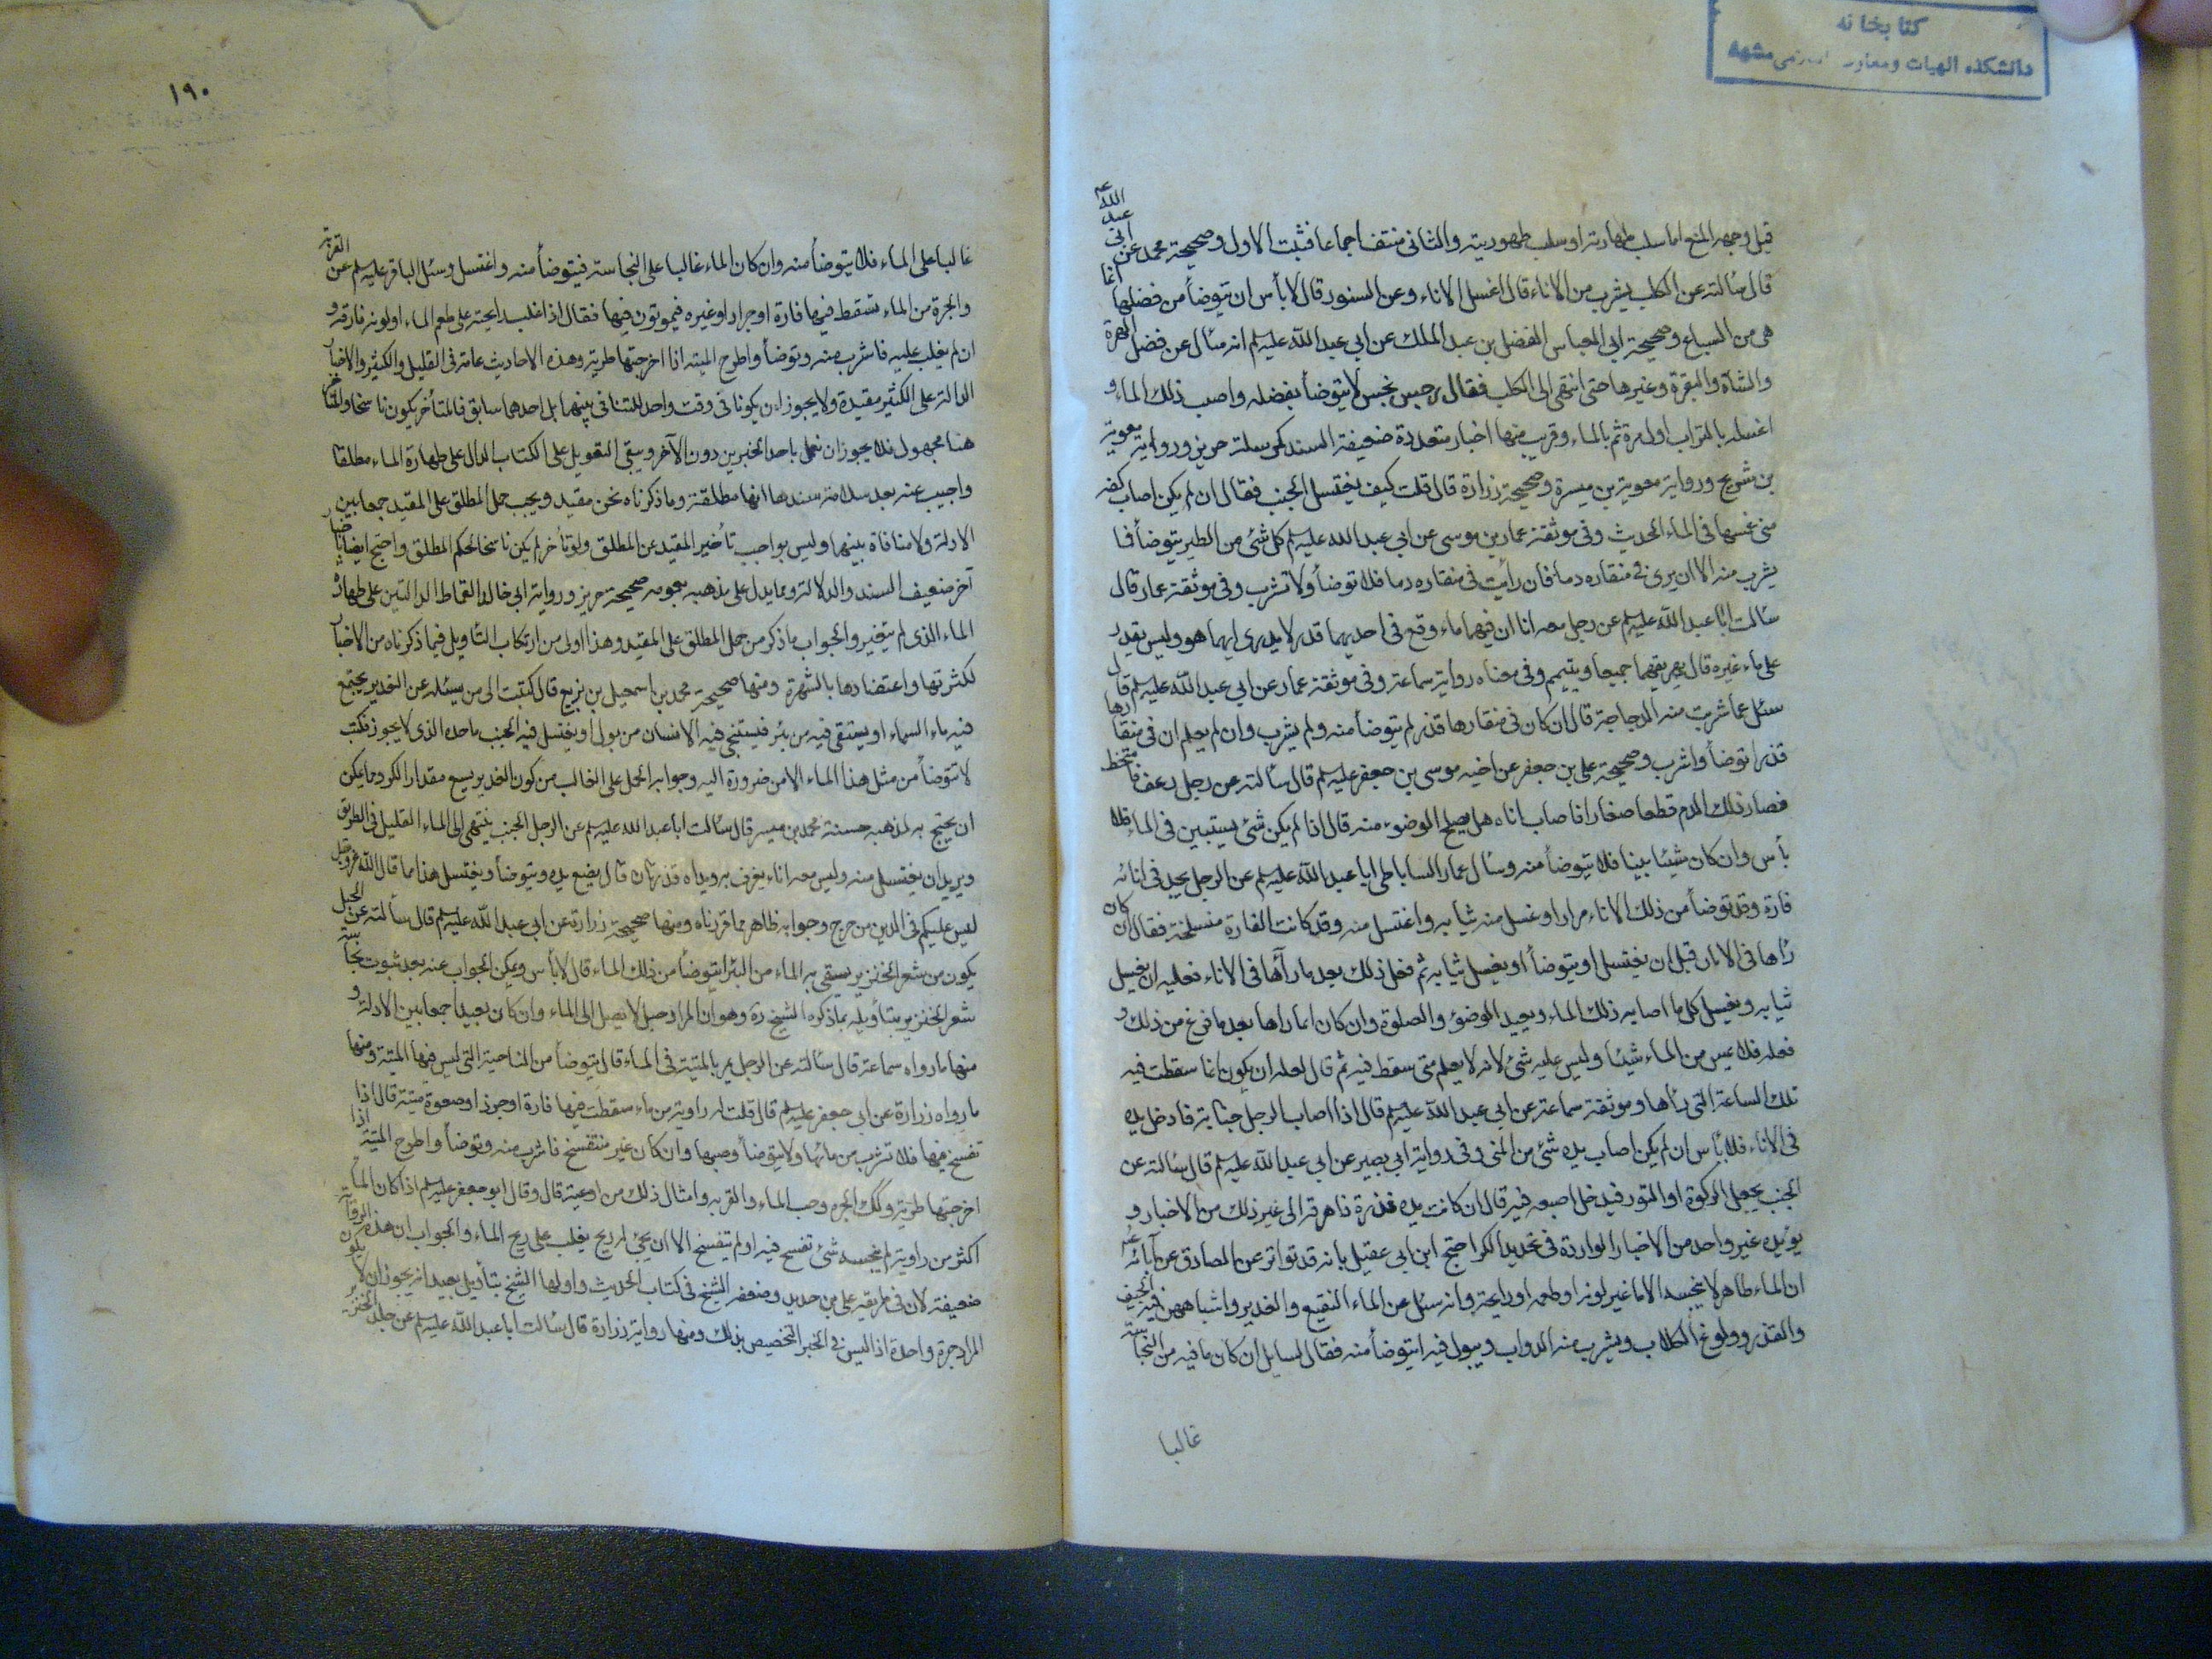 كتابخانه
دانشكده الهيات ومعارف اسلامى مشهد
قيل وجهه المنع اما سلب طهارته او سلب طهوريته والثانى منتف اجماعا فثبت الاول وصحيحة محمد عن ابى عبد الله
قال سألته عن الكلب يشرب من الاناء قال اغسل الاناء وعن السنور قال لا بأس ان يتوضأ من فضلها انما
هى من السباع وصحيحة ابى العباس الفضل بن عبد الملك عن ابى عبد الله عليه السلم انه سئال عن فضل الهرة
والشاة والبقرة وغيرها حتى انتهى الى الكلب فقال رجس نجس لا يتوضأ بفضله واصبب ذلك الماء و
اغسله بالتراب اول مرة ثم بالماء وقريب منها اخبار متعددة ضعيفة السند كمرسلة حريز ورواية معوية
بن شريح ورواية معوية بن ميسرة وصحيحة زرارة قال قلت كيف يغتسل الجنب فقال ان لم يكن اصاب كفه
منى غمسها فى الماء الحديث وفى موثقة عمار بن موسى عن ابى عبد الله عليه السلم كل شئ من الطير يتوضأ مما
يشرب منه الا ان يرى فى منقاره دما فان رأيت فى منقاره دما فلا توضأ ولا تشرب وفى موثقة عمار قال
سئالت ابا عبد الله عليه السلم عن رجل معه اناان فيهما ماء وقع فى احديهما قذر لا يدرى ايهما هو وليس يقدر
على ماء غيره قال يهريقهما جميعا ويتيمم وفى معناه رواية سماعة وفى موثقة عمار عن ابى عبد الله عليه السلم قال
سئل عما شربت منه الدجاجة قال ان كان فى منقارها قذر لم يتوضأ منه ولم يشرب وان لم يعلم ان فى منقارها
قذرا توضأ واشرب وصحيحة على بن جعفر عن اخيه موسى بن جعفر عليه السلم قال سألته عن رجل رعف فامتخط
فصار ذلك الدم قطعا صغارا فاصاب اناه هل يصلح الوضوء منه قال اذا لم يكن شئ يستبين فى الماء فلا
بأس وان كان شيئا بينا فلا يتوضأ منه وسئال عمار الساباطى ابا عبد الله عليه السلم عن الرجل يجد فى انائه
فارة وقد توضأ من ذلك الاناء مرارا وغسل منه ثيابه واغتسل منه وقد كانت الفارة منسلخة فقال ان كان
رأها فى الاناء قبل ان يغتسل او يتوضأ او يغسل ثيابه ثم فعل ذلك بعد ما رآها فى الاناء فعليه ان يغسل
ثيابه ويغسل كل ما اصابه ذلك الماء ويعيد الوضوء والصلوة وان كان انما راها بعد ما فرغ من ذلك و
فعله فلا يمس من الماء شيئا وليس عليه شئ لانه لا يعلم متى سقط فيه ثم قال لعله ان يكون انما سقطت فيه
تلك الساعة التى رأها وموثقة سماعة عن ابى عبد الله عليه السلم قال اذا اصاب الرجل جنابة فادخل يده
فى الاناء فلا بأس ان لم يكن اصاب يده شئ من المنى وفى رواية ابى بصير عن ابى عبد الله عليه السلم قال سئالته عن
الجنب يجعل الركوة او التور فيدخل اصبعه فيه قال ان كانت يده قذرة فاهرقه الى غير ذلك من الاخبار و
يؤيده غير واحد من الاخبار الواردة فى تحديد الكر احتج ابن ابى عقيل بانه قد تواتر عن الصادق عن آبائه
ان الماء طاهر لا ينجسه الا ما غير لونه او طعمه او رايحته وانه سئل عن الماء النقيع والغدير واشباههن فيه الجيف
والقذر وولوغ الكلاب ويشرب منه الدواب ويبول فيه ايتوضأ منه فقال لسايله ان كان ما فيه من النجاسة
غالبا
١٩٠
غالبا على الماء فلا يتوضأ منه وان كان الماء غالبا على النجاسة فيتوضأ منه واغتسل وسئل الباقر عليه السلم عن القربة
والجرة من الماء تسقط فيها فارة او جراد او غيره فيموتون فيها فقال اذا غلب رايحته على طعم الماء او لونه فارقه و
ان لم يغلب عليه فاشرب منه وتوضأ واطرح الميتة اذا اخرجتها طرية وهذه الاحاديث عامة فى القليل والكثير والاخبار
الدالة على الكثير مقيدة ولا يجوز ان يكونا فى وقت واحد للتنافى بينهما بل احدهما سابق فالمتأخر يكون ناسخا والمتأخر
هنا مجهول فلا يجوز ان نعمل باحد الخبرين دون الآخر ويبقى التعويل على الكتاب الدال على طهارة الماء مطلقا
واجيب عنه بعد سلامة سندها انها مطلقة وما ذكرناه نحن مقيد ويجب حمل المطلق على المقيد جمعا بين
الادلة ولا منافاة بينهما وليس بواجب تأخير المقيد عن المطلق ولو تأخر لم يكن ناسخا لحكم المطلق واحتج ايضا باخبار
آخر ضعيفة السند والدلالة ومما يدل على مذهبه بعمومه صحيحة حريز ورواية ابى خالد القماط الدالتين على طهارة
الماء الذى لم يتغير والجواب ما ذكر من حمل المطلق على المقيد وهذا اولى من ارتكاب التأويل فيما ذكرناه من الاخبار
لكثرتها واعتضادها بالشهرة ومنها صحيحة محمد بن اسمعيل بن بزيع قال كتبت الى من يسئله عن الغدير يجتمع
فيه ماء السماء او يستقى فيه من بئر فيستنجى فيه الانسان من بول او يغتسل فيه الجنب ما حده الذى لا يجوز فكتب
لا تتوضأ من مثل هذا الماء الا من ضرورة اليه وجوابه الحمل على الغالب من كون الغدير يسع مقدار الكر ومما يمكن
ان يحتج به لمذهبه حسنة محمد بن ميسر قال سئالت ابا عبد الله عليه السلم عن الرجل الجنب ينتهى الى الماء القليل فى الطريق
ويريد ان يغتسل منه وليس معه اناء يغرف به ويداه قذرتان قال يضع يده ويتوضأ ويغتسل هذا مما قال الله عز وجل
ليس عليكم فى الدين من حرج وجوابه ظاهر مما قررناه ومنها صحيحة زرارة عن ابى عبد الله عليه السلم قال سألته عن الحبل
يكون من شعر الخنزير يستقى به الماء من البئر ايتوضأ من ذلك الماء قال لا بأس ويمكن الجواب عنه بعد ثبوت نجاسة
شعر الخنزير بتأويله بما ذكره الشيخ ره وهو ان المراد حبل لا يصل الى الماء وان كان بعيدا جمعا بين الادلة و
منها ما رواه سماعة قال سئالته عن الرجل يمر بالميتة فى الماء قال يتوضأ من الناحية التى ليس فيها الميتة ومنها
ما رواه زرارة عن ابى جعفر عليه السلم قال قلت له راوية من ماء سقطت فيها فارة او جرذ او صعوة ميتة قال اذا
تفسخ فيها فلا تشرب من مائها ولا يتوضأ وصبها وان كان غير متفسخ فاشرب منه وتوضأ واطرح الميتة اذا
اخرجتها طرية وكك الجرة وحب الماء والقربة وامثال ذلك من اوعية قال وقال ابو جعفر عليه السلم اذا كان الماء
اكثر من راوية لم ينجسه شئ تفسخ فيه او لم يتفسخ الا ان يجئ له ريح يغلب على ريح الماء والجواب ان هذه الرواية
ضعيفة لان فى طريقه على بن حديد وضعفه الشيخ فى كتاب الحديث واولها الشيخ بتأويل بعيد انه يجوز ان لا يكون
المراد جرة واحدة اذ ليس فى الخبر التخصيص بذلك ومنها رواية زرارة قال سئالت ابا عبد الله عليه السلم عن جلد الخنزير